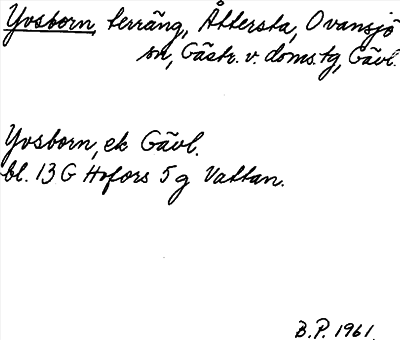 Yvsborn, terräng, Åttersta, Ovansjö
sn, Gästr. v. doms.tg, Gävl.
Yvsborn, ek Gävl.
bl. 13 G Hofors 5 g Vattan.
B.P. 1961.